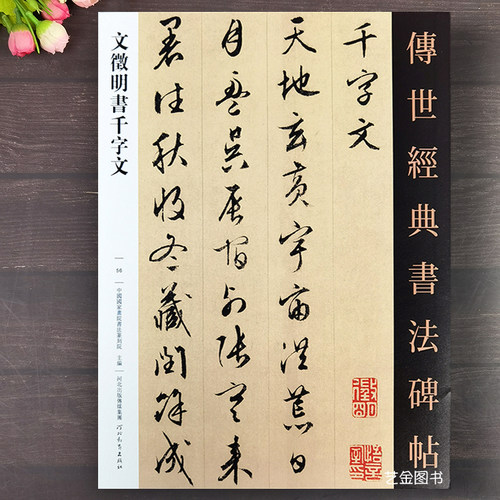 傳世經典書法碑帖
千字文
天地玄黃宇宙洪荒日
月盈昃辰宿列張寒来
暑往秋收冬藏閏餘成
文徵明書千字文
中國國家畫院書法篆刻院 主編
河北出版傳媒集團
河北教育出版社
艺金图书